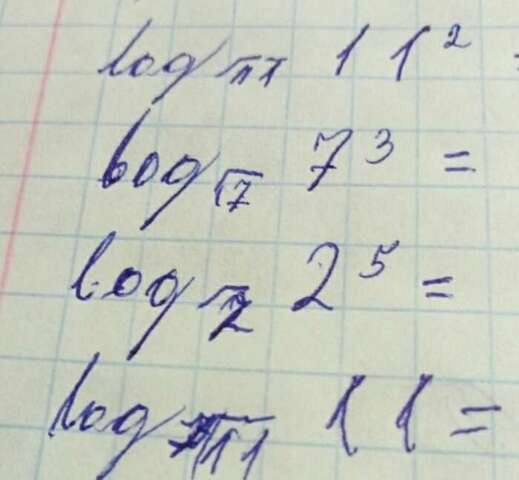 log√11 11²
log√7 7³ =
log√2 2⁵ =
log√11 11 =